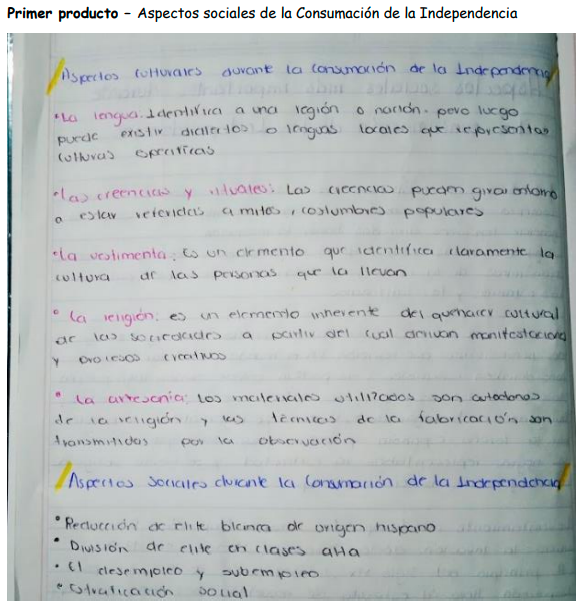 Primer producto – Aspectos sociales de la Consumación de la Independencia
Aspectos culturales durante la consumación de la Independencia
•La lengua. Identifica a una región o nación. pero luego
puede existir dialectos o lenguas locales que representan
culturas especificas
•las creencias y rituales: Las creencias puedm girar entorno
a estar referidas a mitos, costumbres populares
•la vestimenta: Es un elemento que identifica claramente la
cultura de las personas que la llevan
• la religión: es un elemento inherente del quehacer cultural
de las sociedades a partir del cual derivan manifestaciones
y procesos creativos
• la artesania: los materiales utilizados son autoctonos
de la religión y las técnicas de la fabricación son
transmitidas por la observación
Aspectos sociales durante la consumación de la Independencia
• Reducción de elite blanca de origen hispano
• División de elite en clases alta
• El desempleo y subempleo
• Estraticación social